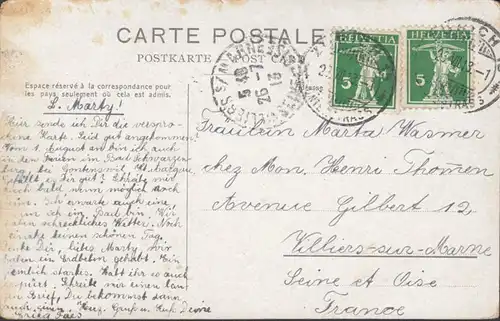 CARTE POSTALE
POSTKARTE POST C
Espace réservé à la correspondance pour
les pays seulement où cela est admis.
HELVETIA HELVETIA
5 5
L. Marty!
Hier sende ich Dir die verspro-
chene Karte. Seid gut angekommen?
Vom 1. August an bin ich auch
in den Ferien im Bad Schwarzen-
berg bei Gontenswil
es Ihr gut? Schreibe mir
auch bald, wenn möglich auch
Ich erwarte auch eine,
ich im Bad bin. Wir
haben schreckliches Wetter. Noch
keinen schönen Tag.
Denke Dir, liebes Marty, wir
haben ein Erdbeben gehabt. Ein
ziemlich starkes. Habt ihr es auch
gespürt. Schreibe mir einen lan-
gen Brief, Du bekommst dann
auch einen. Herz. Gruß u. Kuß Deine
Erica
Fräulein Marta Wasmer
chez Mon. Henri Thomen
Avenue Gilbert 12,
Villiers-sur-Marne
Seine et Oise
France